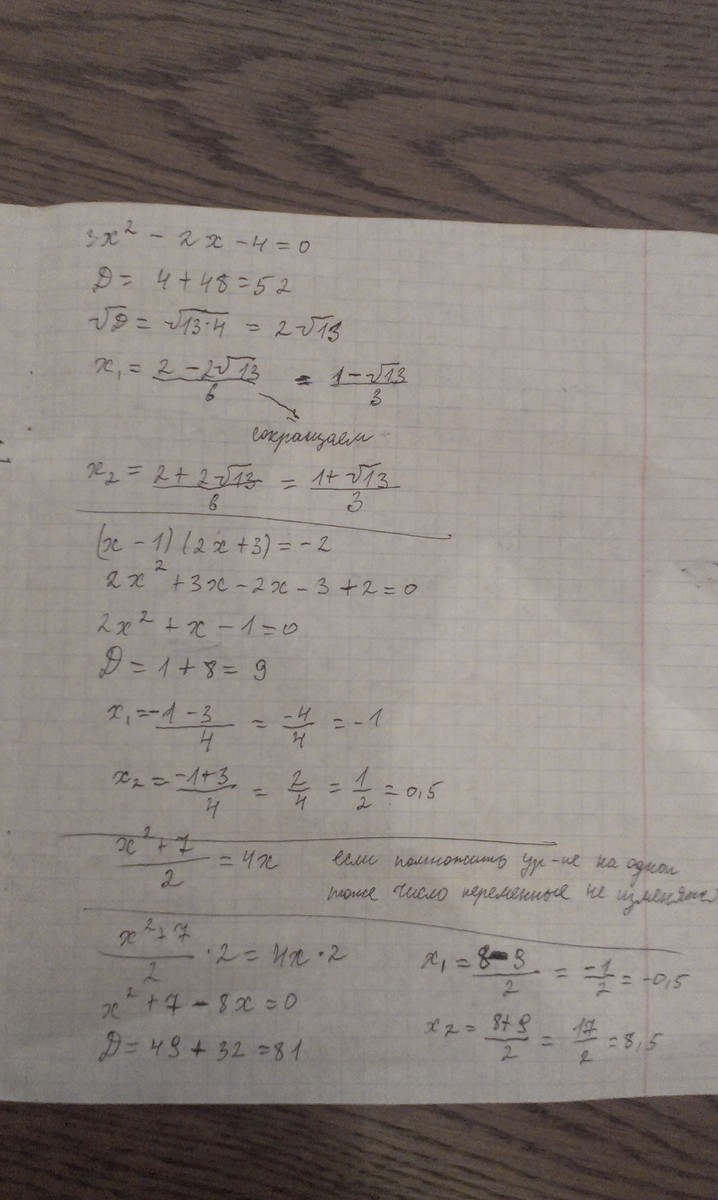 3x² - 2x - 4 = 0
D = 4 + 48 = 52
√D = √13·4 = 2√13
x₁ = (2 - 2√13)/6 = (1 - √13)/3
сокращаем
x₂ = (2 + 2√13)/6 = (1 + √13)/3
(x - 1)(2x + 3) = -2
2x² + 3x - 2x - 3 + 2 = 0
2x² + x - 1 = 0
D = 1 + 8 = 9
x₁ = (-1 - 3)/4 = -4/4 = -1
x₂ = (-1 + 3)/4 = 2/4 = 1/2 = 0,5
(x² + 7)/2 = 4x
если помножить ур-ие на одно и
тоже число переменные не изменятся
(x² + 7)/2 · 2 = 4x · 2
x² + 7 - 8x = 0
D = 49 + 32 = 81
x₁ = (8 - 9)/2 = -1/2 = -0,5
x₂ = (8 + 9)/2 = 17/2 = 8,5